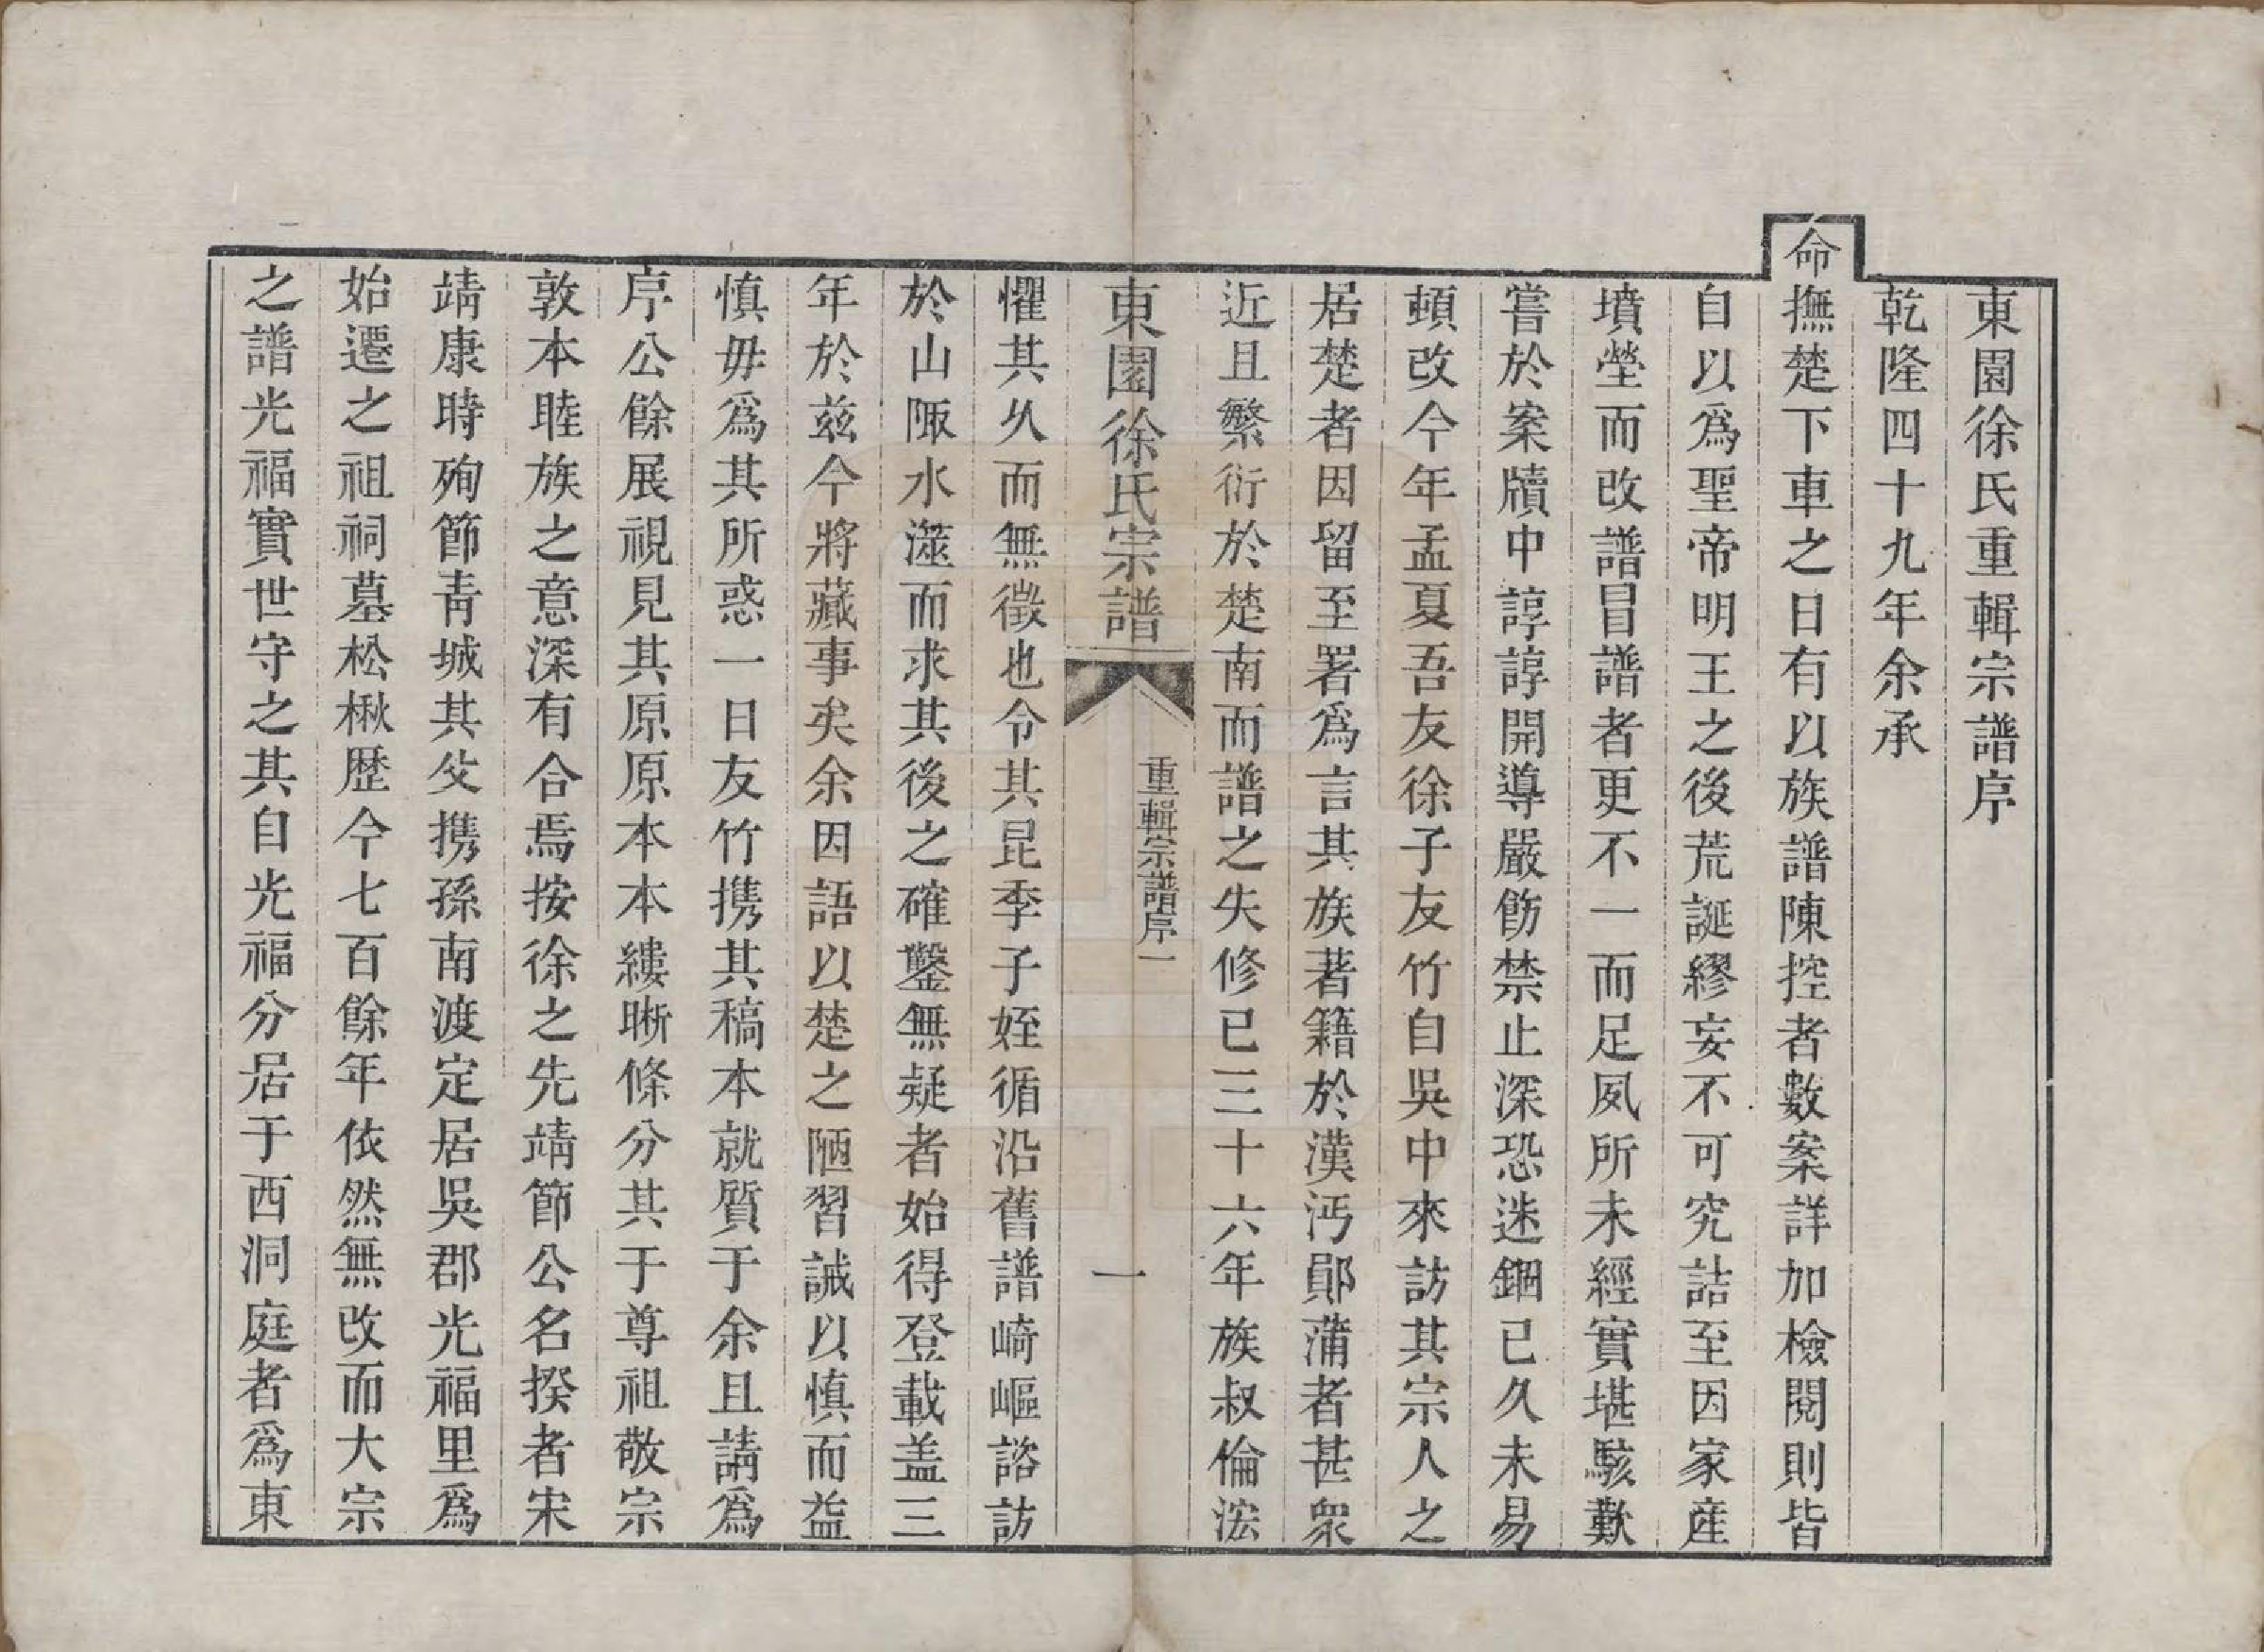 東園徐氏重輯宗譜序
乾隆四十九年余承
命撫楚下車之日有以族譜陳控者數案詳加檢閱則皆
自以爲聖帝明王之後荒誕繆妄不可究詰至因家產
墳塋而改譜冒譜者更不一而足夙所未經實堪駭歎
嘗於案牘中諄諄開導嚴飭禁止深恐迷錮已久未易
頓改今年孟夏吾友徐子友竹自吳中來訪其宗人之
居楚者因留至署爲言其族著籍於漢沔鄖蒲者甚衆
近且繁衍於楚南而譜之失修已三十六年族叔倫浤
東園徐氏宗譜
重輯宗譜序一
一
懼其久而無徵也令其昆季子姪循沿舊譜崎嶇諮訪
於山陬水澨而求其後之確鑿無疑者始得登載盖三
年於茲今將蕆事矣余因語以楚之陋習誡以慎而益
慎毋爲其所惑一日友竹携其稿本就質于余且請爲
序公餘展視見其原原本本縷晰條分其于尊祖敬宗
敦本睦族之意深有合焉按徐之先靖節公名揆者宋
靖康時殉節靑城其父携孫南渡定居吳郡光福里爲
始遷之祖祠墓松楸歷今七百餘年依然無改而大宗
之譜光福實世守之其自光福分居于西洞庭者爲東